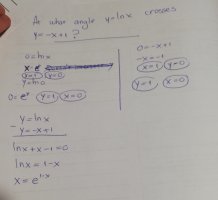 At what angle y=lnx crosses
y=-x+1?
0=lnx
x=e⁰
x=1 y=0
y=ln0
0=eʸ y=1 x=0
0=-x+1
-x=-1
x=1 y=0
y=1 x=0
y=lnx
- y=-x+1
lnx+x-1=0
lnx=1-x
x=e¹⁻ˣ